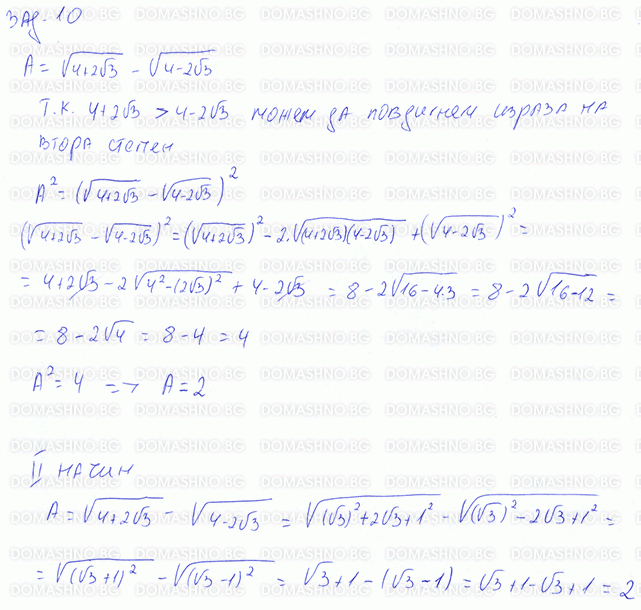 Зад. 10
A = √(4+2√3) - √(4-2√3)
Т.К. 4+2√3 > 4-2√3 можем да повдигнем израза на
втора степен
A² = (√(4+2√3) - √(4-2√3))²
(√(4+2√3) - √(4-2√3))² = (√(4+2√3))² - 2.√((4+2√3)(4-2√3)) + (√(4-2√3))² =
= 4+2√3 - 2√(4²-(2√3)²) + 4-2√3 = 8-2√(16-4.3) = 8-2√(16-12) =
= 8-2√4 = 8-4 = 4
A² = 4 => A = 2
II начин
A = √(4+2√3) - √(4-2√3) = √((√3)²+2√3+1²) - √((√3)²-2√3+1²) =
= √((√3+1)²) - √((√3-1)²) = √3+1-(√3-1) = √3+1-√3+1 = 2
DOMASHNO.BG